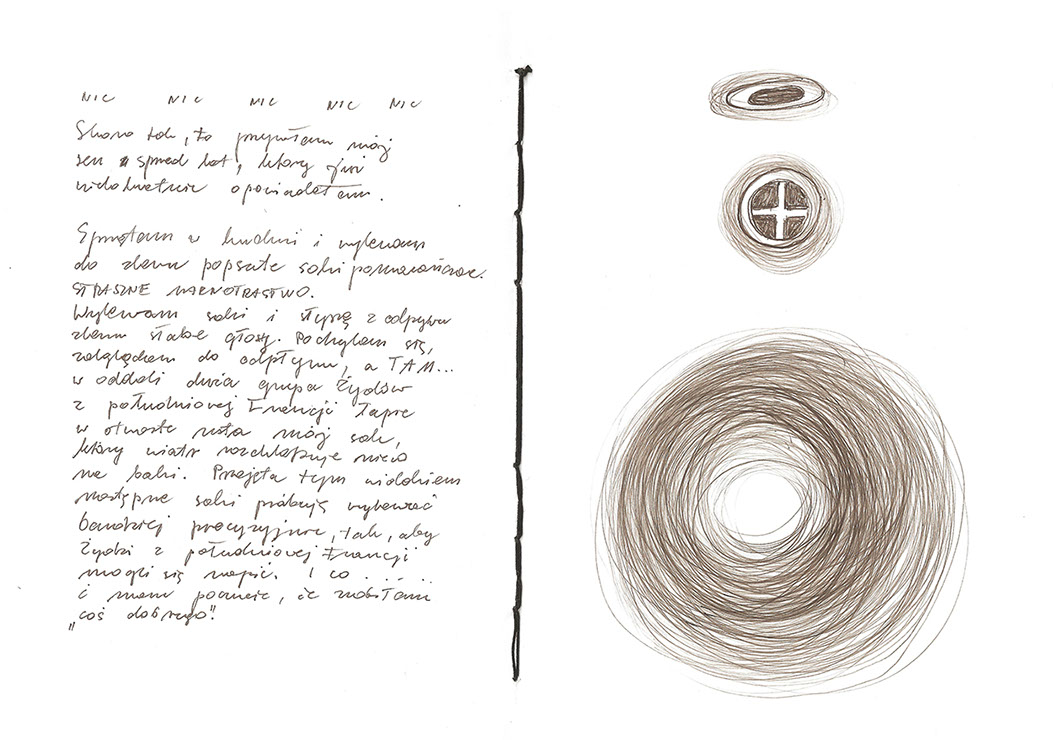 NIC NIC NIC NIC NIC
Skoro tak, to przywołam mój
sen sprzed lat, który już
wielokrotnie opowiadałam.
Sprzątam w kuchni i wylewam
do zlewu popsute soki pomarańczowe.
STRASZNE MARNOTRASTWO.
Wylewam soki i słyszę z odpływu
zlewu słabe głosy. Pochylam się,
zaglądam do odpływu, a TAM...
w oddali duża grupa Żydów
z południowej Francji łapie
w otwarte usta mój sok,
który wiatr rozchlapuje nieco
na boki. Przejęta tym widokiem
następne soki próbuję wylewać
bardziej precyzyjnie, tak, aby
Żydzi z południowej Francji
mogli się napić. I co . . . . .
i mam poczucie, że zrobiłam
„coś dobrego".